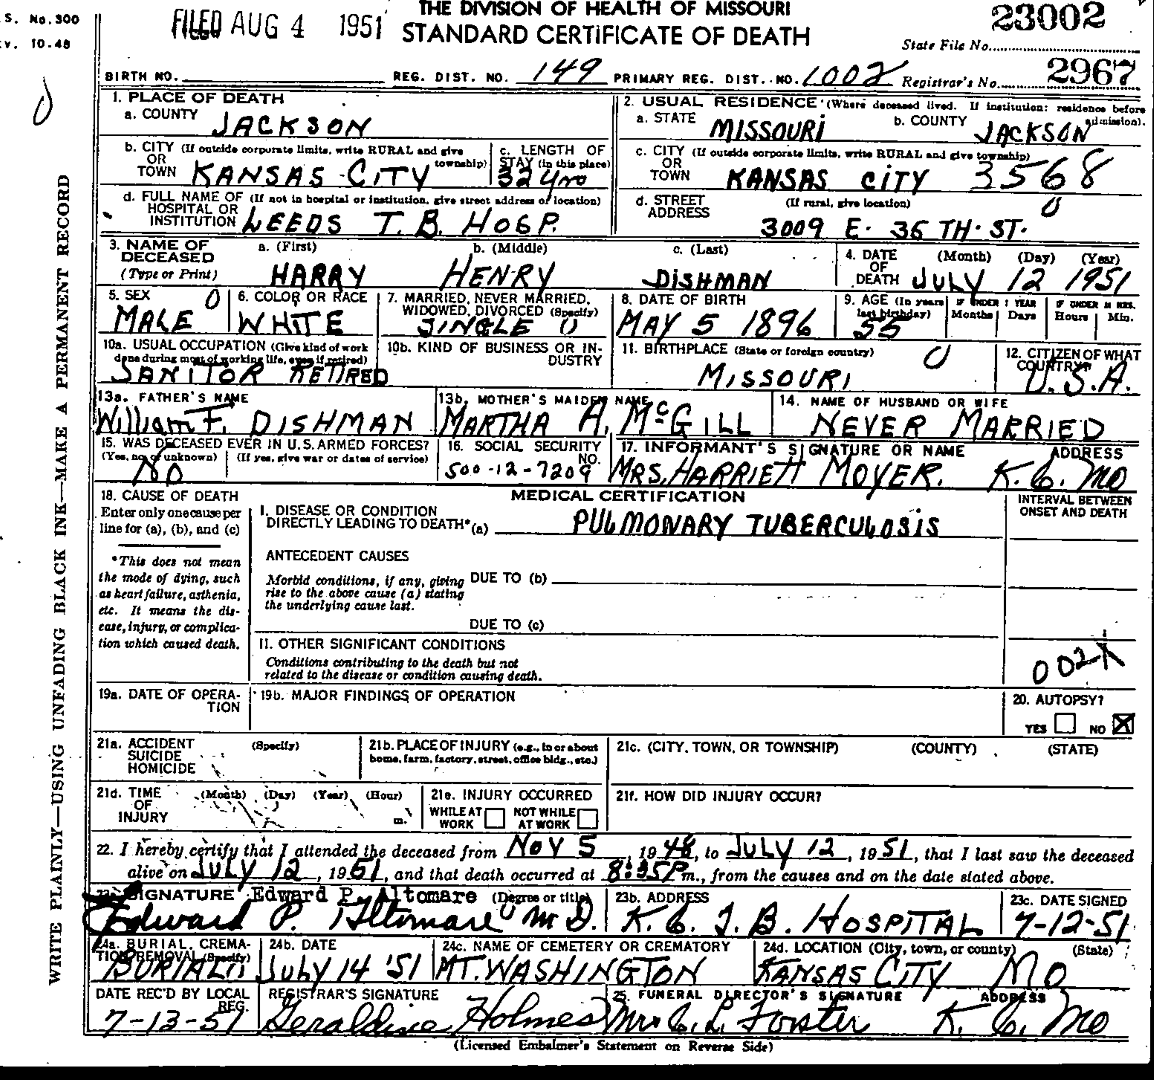 S. No. 300
v. 10-48
FILED AUG 4 1951
THE DIVISION OF HEALTH OF MISSOURI
STANDARD CERTIFICATE OF DEATH
23002
State File No.
BIRTH NO. REG. DIST. NO. 149 PRIMARY REG. DIST. NO. 1002 Registrar's No. 2967
WRITE PLAINLY—USING UNFADING BLACK INK—MAKE A PERMANENT RECORD
1. PLACE OF DEATH
a. COUNTY JACKSON
2. USUAL RESIDENCE (Where deceased lived. If institution: residence before admission).
a. STATE MISSOURI b. COUNTY JACKSON
b. CITY (If outside corporate limits, write RURAL and give township) OR TOWN KANSAS CITY
c. LENGTH OF STAY (in this place) 32 yrs
c. CITY (If outside corporate limits, write RURAL and give township) OR TOWN KANSAS CITY 3568
d. FULL NAME OF (If not in hospital or institution, give street address or location) HOSPITAL OR INSTITUTION LEEDS T. B. HOSP.
d. STREET ADDRESS (If rural, give location) 3009 E. 36 TH. ST.
3. NAME OF DECEASED (Type or Print)
a. (First) HARRY b. (Middle) HENRY c. (Last) DISHMAN
4. DATE OF DEATH (Month) (Day) (Year) JULY 12 1951
5. SEX MALE
6. COLOR OR RACE WHITE
7. MARRIED, NEVER MARRIED, WIDOWED, DIVORCED (Specify) SINGLE
8. DATE OF BIRTH MAY 5 1896
9. AGE (In years last birthday) 55 IF UNDER 1 YEAR Months Days IF UNDER 24 HRS. Hours Min.
10a. USUAL OCCUPATION (Give kind of work done during most of working life, even if retired) JANITOR RETIRED
10b. KIND OF BUSINESS OR INDUSTRY
11. BIRTHPLACE (State or foreign country) MISSOURI
12. CITIZEN OF WHAT COUNTRY? U.S.A.
13a. FATHER'S NAME William F. DISHMAN
13b. MOTHER'S MAIDEN NAME MARTHA A. McGILL
14. NAME OF HUSBAND OR WIFE NEVER MARRIED
15. WAS DECEASED EVER IN U.S. ARMED FORCES? (Yes, no, or unknown) (If yes, give war or dates of service) NO
16. SOCIAL SECURITY NO. 500-12-7209
17. INFORMANT'S SIGNATURE OR NAME ADDRESS MRS. HARRIETT MOYER. K. C. MO
18. CAUSE OF DEATH
Enter only one cause per line for (a), (b), and (c)
*This does not mean the mode of dying, such as heart failure, asthenia, etc. It means the disease, injury, or complication which caused death.
MEDICAL CERTIFICATION
INTERVAL BETWEEN ONSET AND DEATH
I. DISEASE OR CONDITION DIRECTLY LEADING TO DEATH* (a) PULMONARY TUBERCULOSIS
ANTECEDENT CAUSES
Morbid conditions, if any, giving rise to the above cause (a) stating the underlying cause last.
DUE TO (b)
DUE TO (c)
II. OTHER SIGNIFICANT CONDITIONS
Conditions contributing to the death but not related to the disease or condition causing death.
002X
19a. DATE OF OPERATION
19b. MAJOR FINDINGS OF OPERATION
20. AUTOPSY?
YES NO X
21a. ACCIDENT SUICIDE HOMICIDE (Specify)
21b. PLACE OF INJURY (e.g., in or about home, farm, factory, street, office bldg., etc.)
21c. (CITY, TOWN, OR TOWNSHIP) (COUNTY) (STATE)
21d. TIME OF INJURY (Month) (Day) (Year) (Hour) m.
21e. INJURY OCCURRED WHILE AT WORK NOT WHILE AT WORK
21f. HOW DID INJURY OCCUR?
22. I hereby certify that I attended the deceased from NOV 5, 1948, to JULY 12, 1951, that I last saw the deceased
alive on JULY 12, 1951, and that death occurred at 8:35P m., from the causes and on the date stated above.
23a. SIGNATURE Edward P. Altomare (Degree or title)
Edward P. Altomare M D.
23b. ADDRESS K. C. T. B. HOSPITAL
23c. DATE SIGNED 7-12-51
24a. BURIAL, CREMATION, REMOVAL (Specify) BURIAL
24b. DATE July 14 '51
24c. NAME OF CEMETERY OR CREMATORY MT. WASHINGTON
24d. LOCATION (City, town, or county) (State) KANSAS CITY MO
DATE REC'D BY LOCAL REG. 7-13-51
REGISTRAR'S SIGNATURE Geraldine Holmes
25. FUNERAL DIRECTOR'S SIGNATURE ADDRESS Mrs C. L. Forster K. C. Mo
(Licensed Embalmer's Statement on Reverse Side)